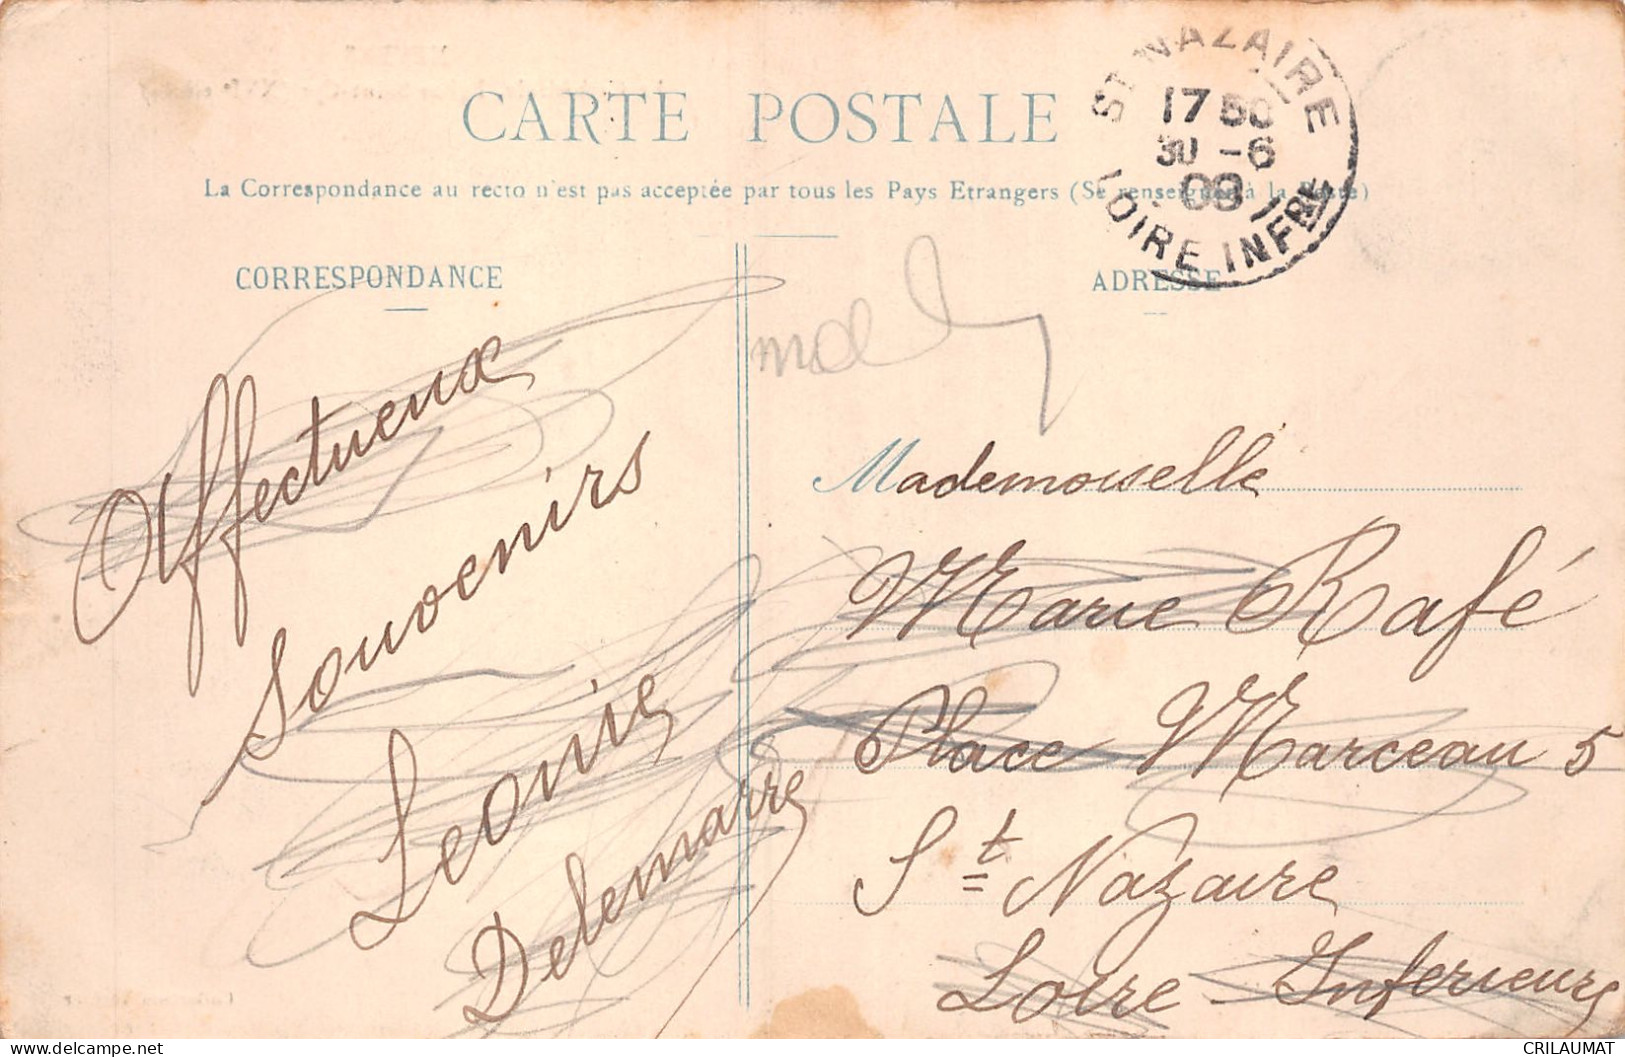 CARTE POSTALE
La Correspondance au recto n'est pas acceptée par tous les Pays Etrangers (Se renseigner à la Poste)
ST NAZAIRE
17 50
30 -6
09
LOIRE INFRE
CORRESPONDANCE
ADRESSE
Affectueux
Souvenirs
Leonie
Delemarre
Mademoiselle
Marie Rafé
Place Marceau 5
St Nazaire
Loire-Inferieure
delcampe.net
CRILAUMAT